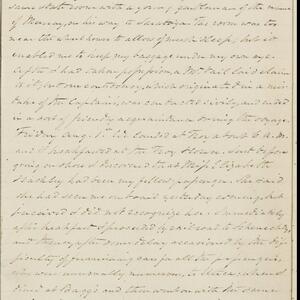 same state room with a young gentleman of the name
of Morgan, on his way to Saratoga. The room was too
near the wheel house to allow of much sleep, but it
enabled me to keep my baggage under my own eye.
After I had taken possession, a Mr. Hall laid claim
to it, but our controversy, which originated in a mis-
take of the Captain, was conducted civilly, and ended
in a sort of friendly acquaintance during the voyage.
Friday Aug. 1st. We landed at Troy about 6 A.M.
and I breakfasted at the Troy House. Just before
going on shore I discovered that Miss Elizabeth
had been my fellow passenger. She said
she had seen me on board yesterday evening but
perceived I did not recognize her. Immediately
after breakfast I proceeded by rail road to Schenectady,
and thence, after some delay occasioned by the dif-
ficulty of procuring cars for all the passengers,
who were unusually numerous, to Utica, where I
dined at Bagg's and then went on with the same